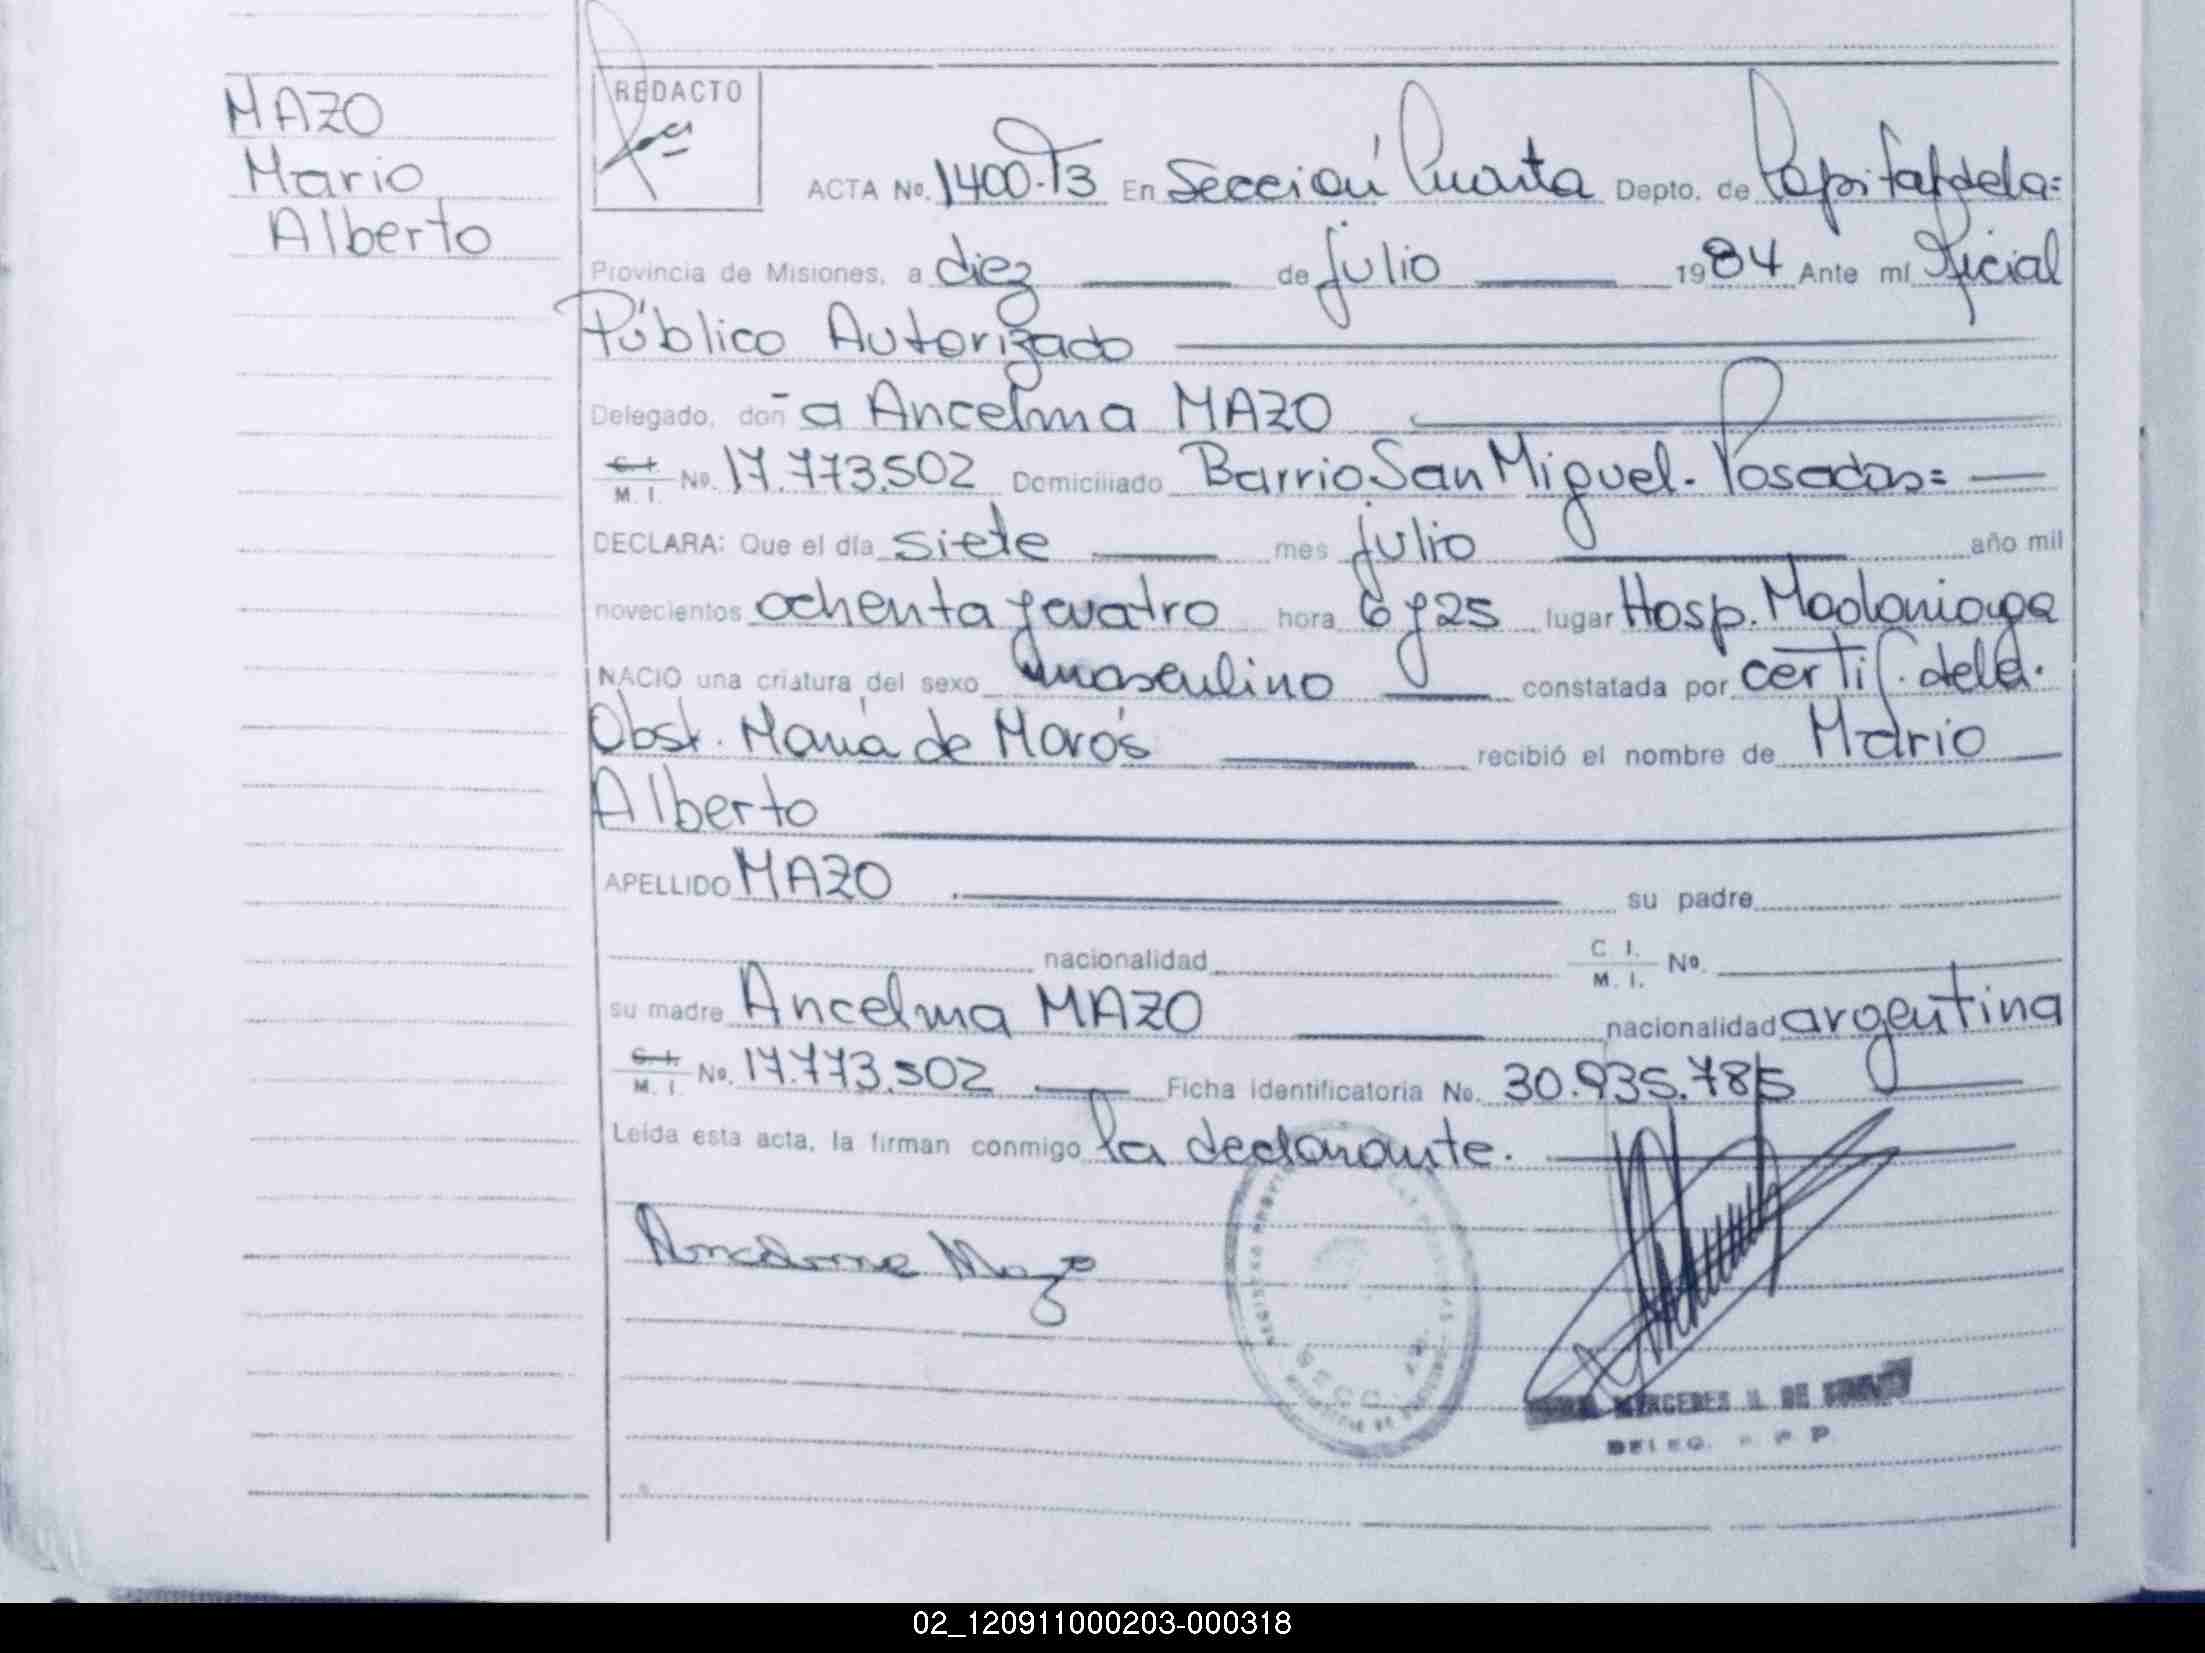 MAZO
Mario
Alberto
REDACTO
ACTA No. 1400.T3 En Sección Cuarta Depto. de Capital de la=
Provincia de Misiones, a diez de julio 1984 Ante mí Oficial
Público Autorizado
Delegado, doñ a Ancelma MAZO
C. I. M. I. No. 17.773.502 Domiciliado Barrio San Miguel. Posadas=
DECLARA: Que el día siete mes julio año mil
novecientos ochenta y cuatro hora 6 y 25 lugar Hosp. Madariaga
NACIO una criatura del sexo masculino constatada por certif. de la
Obst. María de recibió el nombre de Mario
Alberto
APELLIDO MAZO su padre
nacionalidad C. I. M. I. No.
su madre Ancelma MAZO nacionalidad argentina
C. I. M. I. No. 17.773.502 Ficha identificatoria No. 30.935.785
Leída esta acta, la firman conmigo la declarante.
Mazo
SECC.
MERCEDES DE
DELEG. P P
02_120911000203-000318